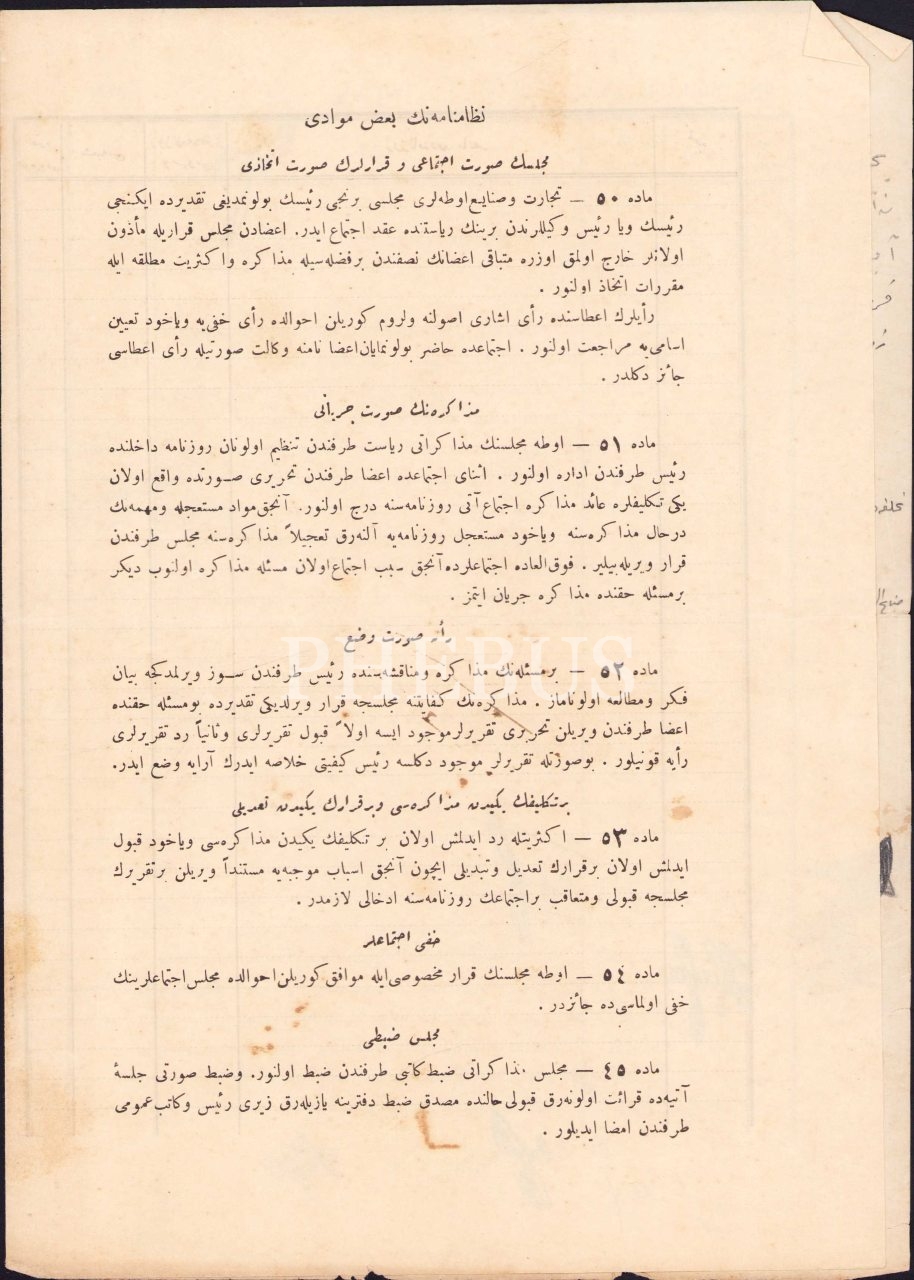 نظامنامه‌نك بعض موادى
مجلسك صورت اجتماعى و قرارلرك صورت اتخاذى
ماده ٥٠ — تجارت وصنايع اوطه‌لرى مجلسى برنجى رئيسك بولونمديغى تقديرده ايكنجى
رئيسك ويا رئيس وكيللرندن برينك رياستنده عقد اجتماع ايدر. اعضادن مجلس قراريله مأذون
اولانلر خارج اولمق اوزره متباقى اعضانك نصفندن برفضله‌سيله مذاكره واكثريت مطلقه ايله
مقررات اتخاذ اولنور .
رأيلرك اعطاسنده رأى اشارى اصولنه ولزوم كوريلن احوالده رأى خفى‌يه وياخود تعيين
اسامى‌يه مراجعت اولنور . اجتماعده حاضر بولونمايان اعضا نامنه وكالت صورتيله رأى اعطاسى
جائز دكلدر .
مذاكره‌نك صورت جريانى
ماده ٥١ — اوطه مجلسنك مذاكراتى رياست طرفندن تنظيم اولونان روزنامه داخلنده
رئيس طرفندن اداره اولنور . اثناى اجتماعده اعضا طرفندن تحريرى صورتده واقع اولان
يكى تكليفلره عائد مذاكره اجتماع آتى روزنامه‌سنه درج اولنور. آنجق مواد مستعجله ومهمه‌نك
درحال مذاكره‌سنه وياخود مستعجل روزنامه‌يه آلنه‌رق تعجيلاً مذاكره‌سنه مجلس طرفندن
قرار ويريله‌بيلير . فوق‌العاده اجتماعلرده آنجق سبب اجتماع اولان مسئله مذاكره اولنوب ديكر
برمسئله حقنده مذاكره جريان ايتمز .
صورت وضع
ماده ٥٢ — برمسئله‌نك مذاكره ومناقشه‌سنده رئيس طرفندن سوز ويرلمدكجه بيان
فكر ومطالعه اولوناماز . مذاكره‌نك كفايتنه مجلسجه قرار ويرلديكى تقديرده بومسئله حقنده
اعضا طرفندن ويريلن تحريرى تقريرلر موجود ايسه اولاً قبول تقريرلرى وثانياً رد تقريرلرى
رأيه قونيلور . بوصورتله تقريرلر موجود دكلسه رئيس كيفيتى خلاصه ايدرك آرايه وضع ايدر.
برتكليفك يكيدن مذاكره‌سى وبرقرارك يكيدن تعديلى
ماده ٥٣ — اكثريتله رد ايدلمش اولان بر تكليفك يكيدن مذاكره‌سى وياخود قبول
ايدلمش اولان برقرارك تعديل وتبديلى ايچون آنجق اسباب موجبه‌يه مستنداً ويريلن برتقريرك
مجلسجه قبولى ومتعاقب براجتماعك روزنامه‌سنه ادخالى لازمدر .
خفى اجتماعلر
ماده ٥٤ — اوطه مجلسنك قرار مخصوصى ايله موافق كوريلن احوالده مجلس اجتماعلرينك
خفى اولماسى‌ده جائزدر .
مجلس ضبطى
ماده ٤٥ — مجلس مذاكراتى ضبط كاتبى طرفندن ضبط اولنور. وضبط صورتى جلسهٔ
آتيه‌ده قرائت اولونه‌رق قبولى حالنده مصدق ضبط دفترينه يازيله‌رق زيرى رئيس وكاتب عمومى
طرفندن امضا ايديلور .
PHEBUS